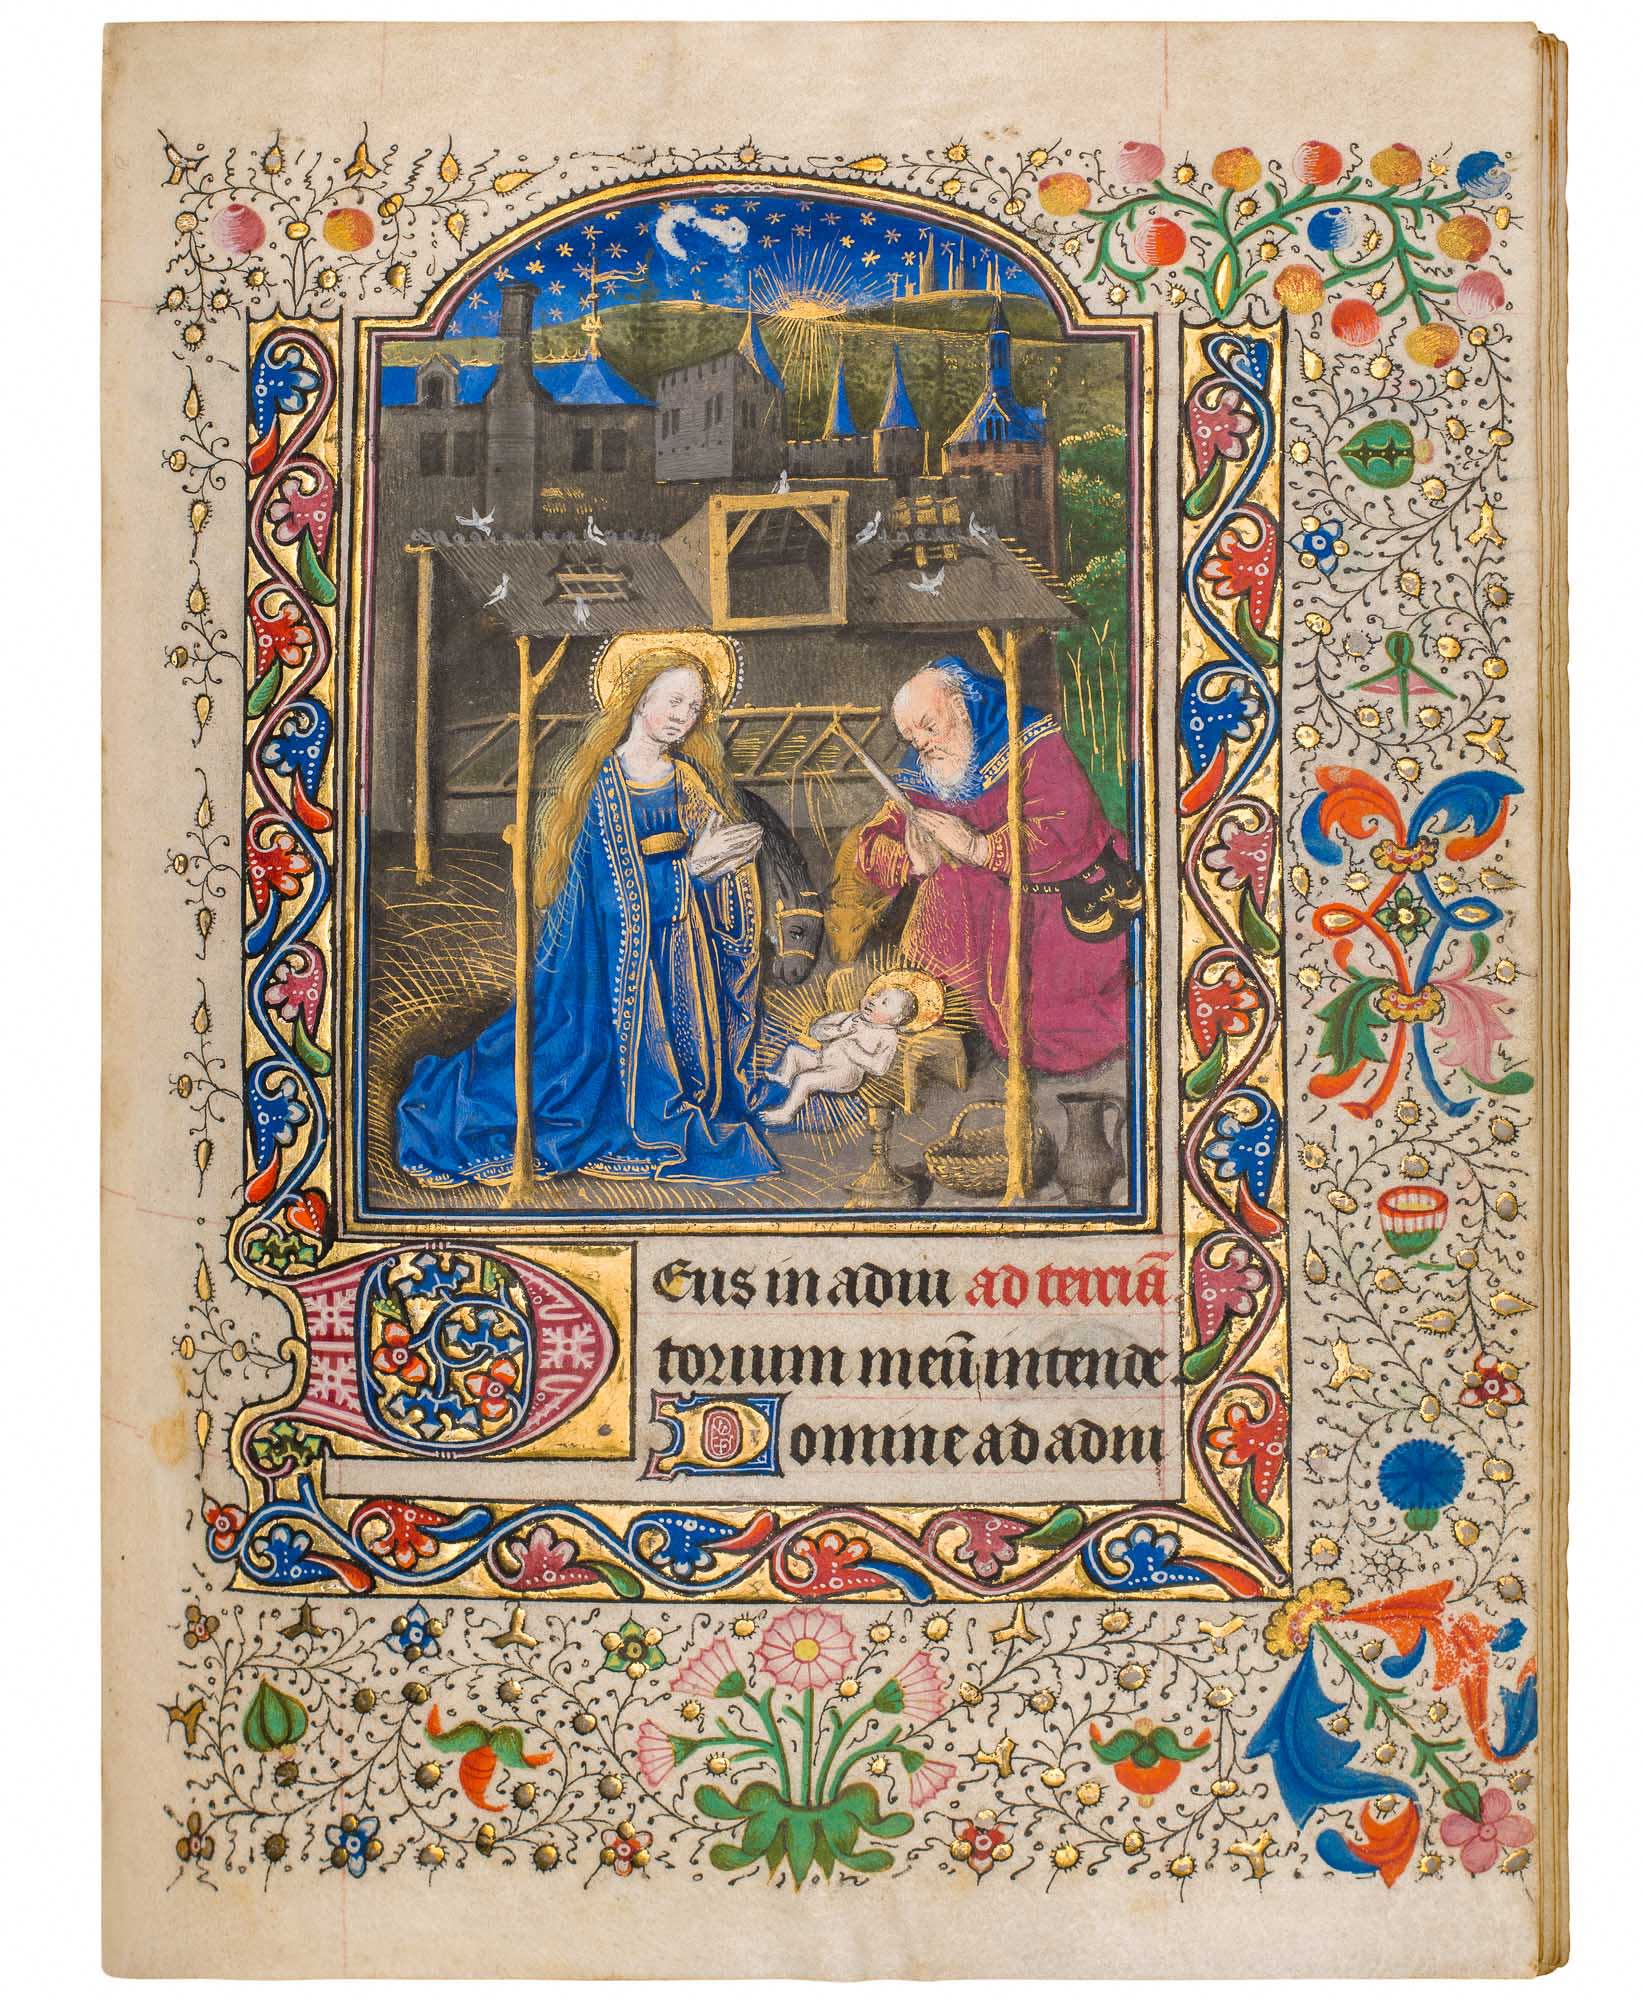 Deus in adiu ad terciā.
torium meū intende.
Domine ad adiu